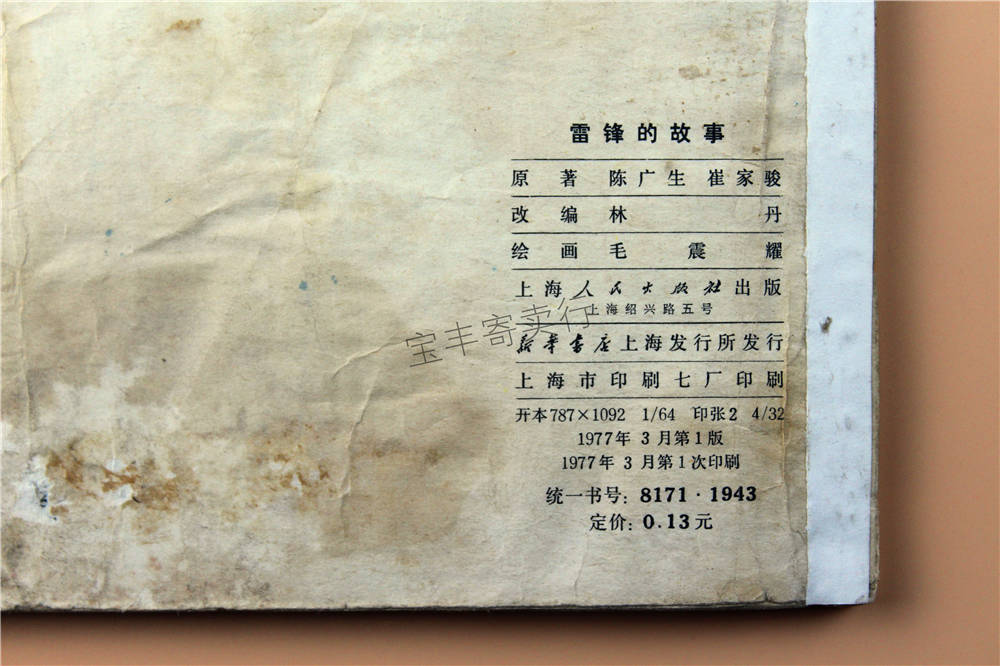 雷锋的故事
原著 陈广生 崔家骏
改编 林丹
绘画 毛震耀
上海人民出版社出版
上海绍兴路五号
新华书店上海发行所发行
上海市印刷七厂印刷
开本787×1092 1/64 印张2 4/32
1977年3月第1版
1977年3月第1次印刷
统一书号：8171·1943
定价：0.13元
宝丰寄卖行